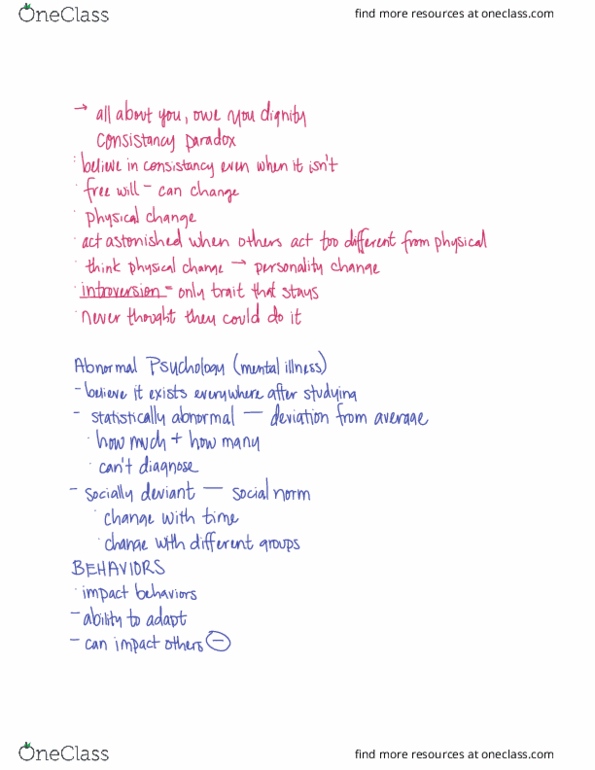 OneClass
find more resources at oneclass.com
→ all about you, owe you dignity
consistancy paradox
· believe in consistancy even when it isn't
· free will - can change
· physical change
· act astonished when others act too different from physical
· think physical change → personality change
· introversion - only trait that stays
· never thought they could do it
Abnormal Psychology (mental illness)
- believe it exists everywhere after studying
- statistically abnormal — deviation from average
· how much + how many
· can't diagnose
- socially deviant — social norm
· change with time
· change with different groups
BEHAVIORS
· impact behaviors
- ability to adapt
- can impact others (-)
OneClass
find more resources at oneclass.com